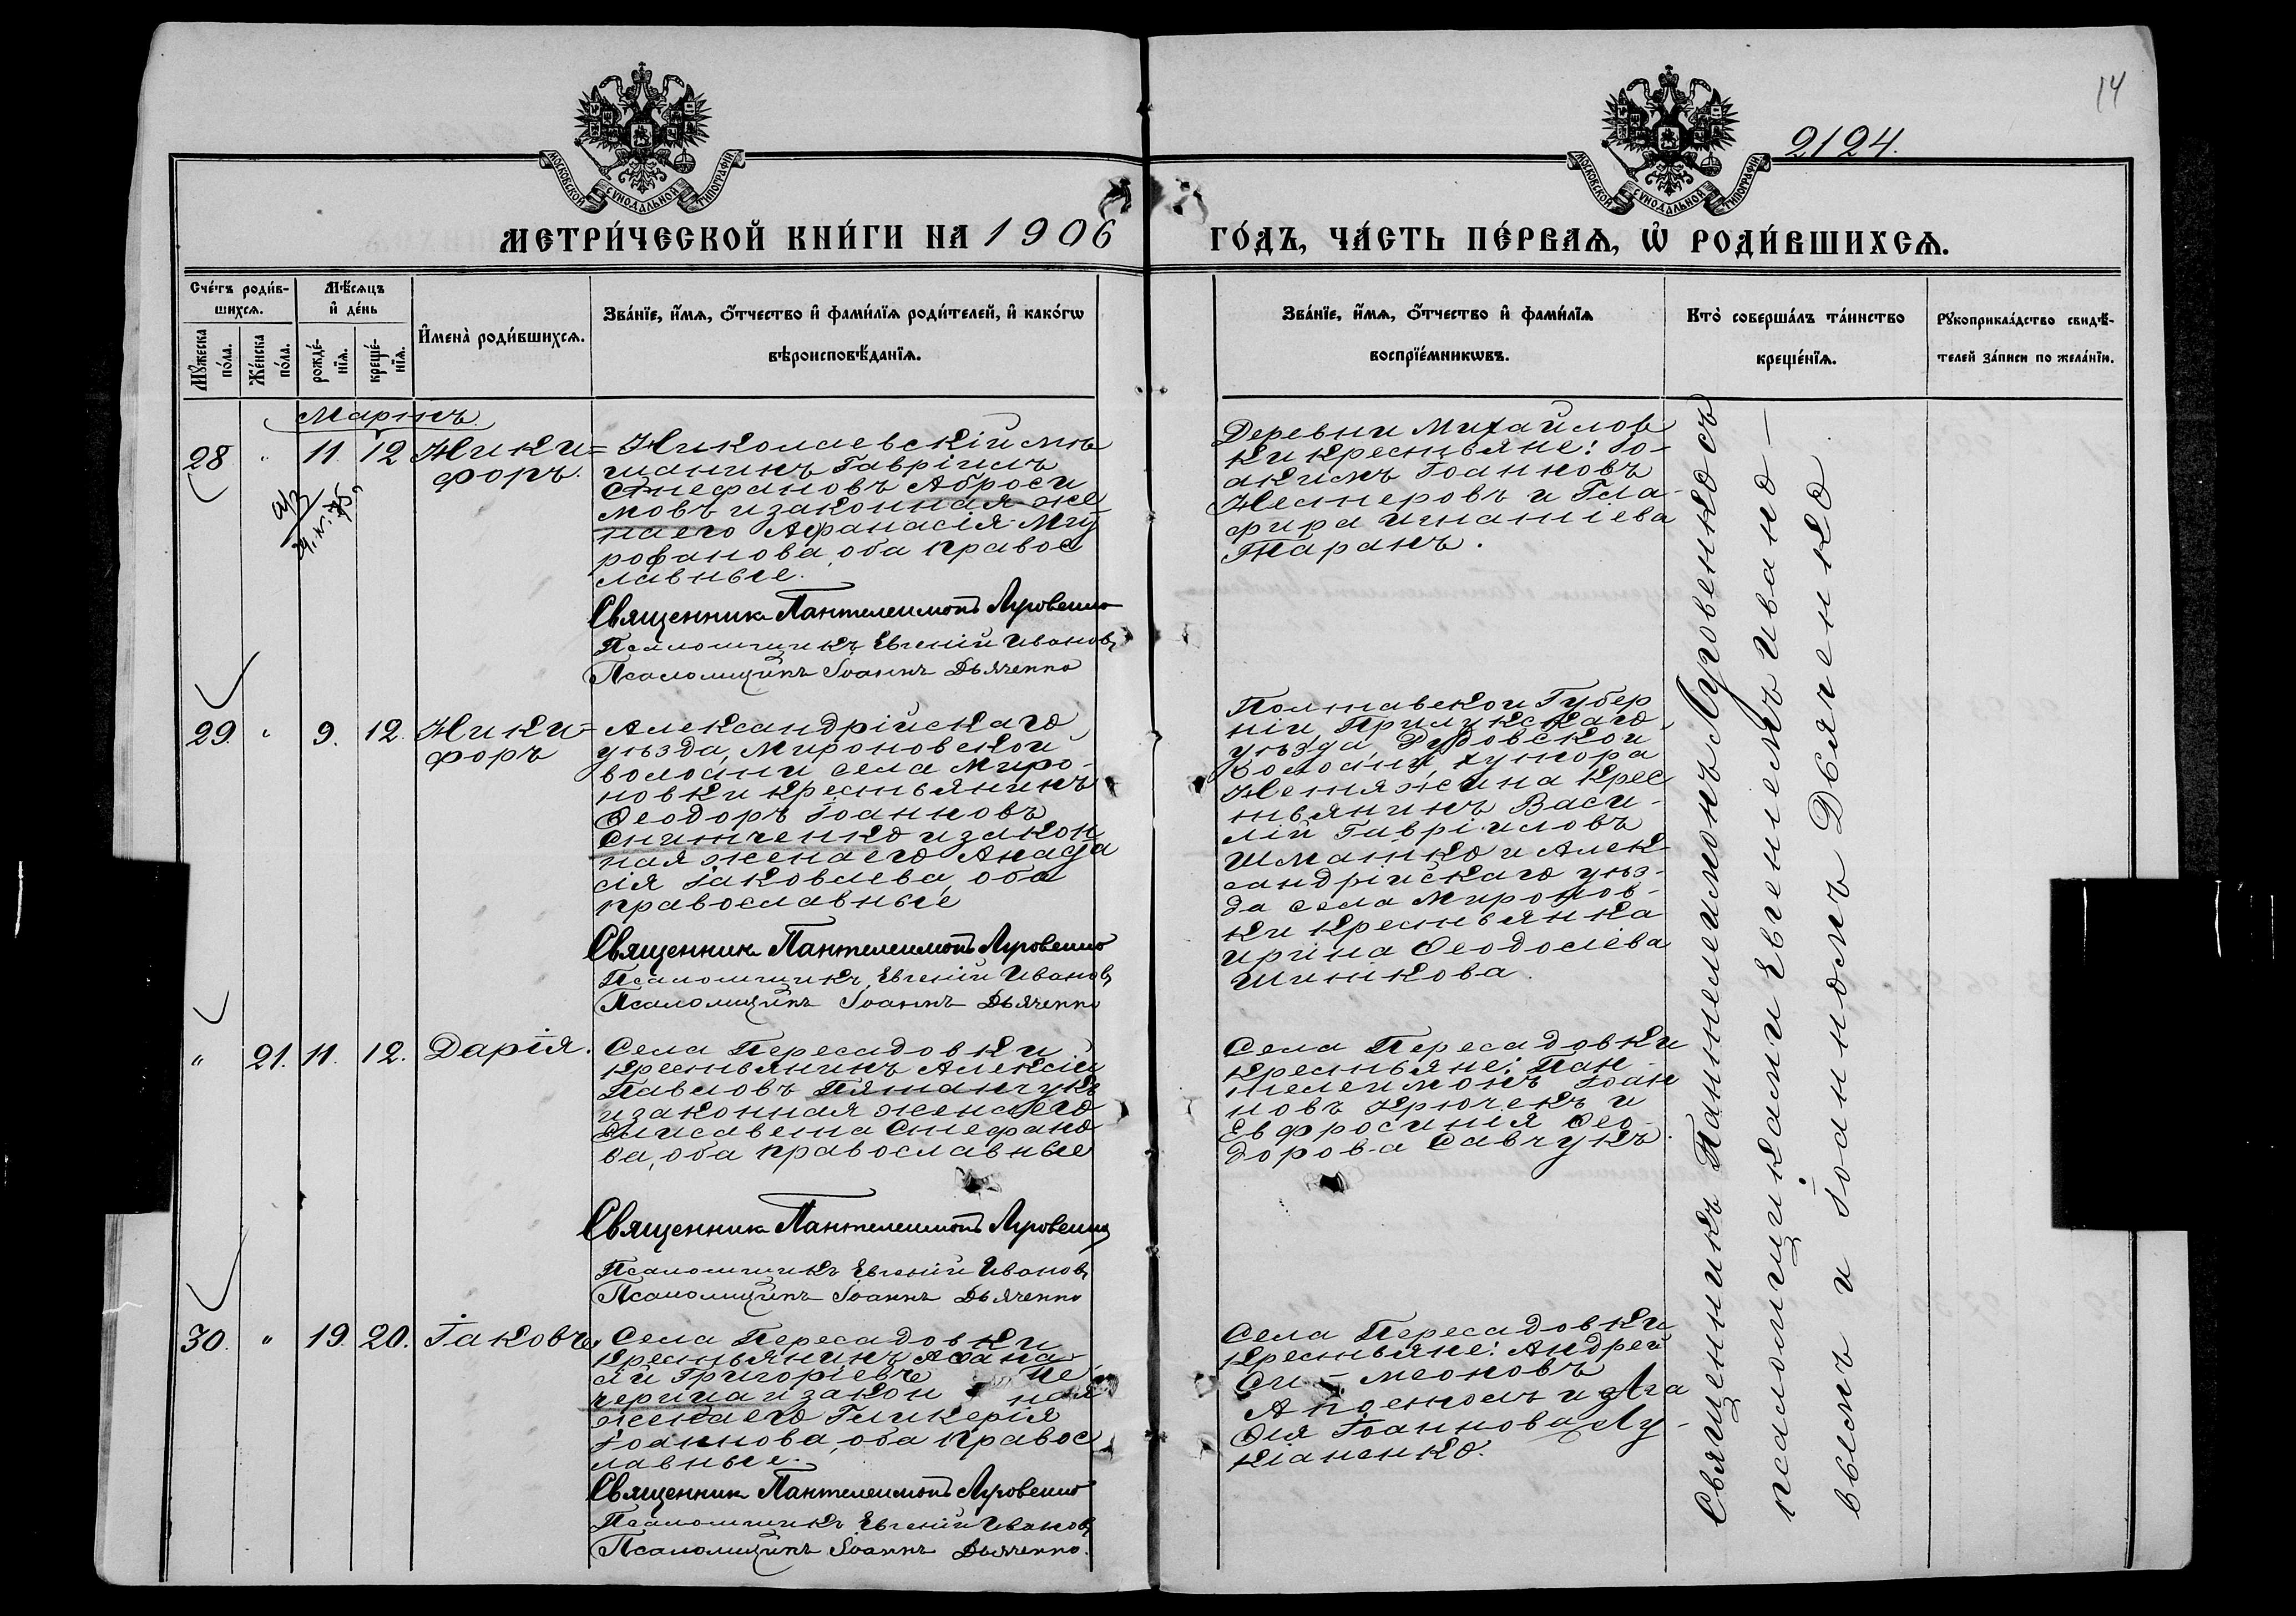 14
2124.
МОСКОВСКОЙ СѴНОДАЛЬНОЙ ТИПОГРАФІИ
МОСКОВСКОЙ СѴНОДАЛЬНОЙ ТИПОГРАФІИ
МЕТРИ́ЧЕСКОЙ КНИ́ГИ НА 1906
ГО́ДЪ, ЧА́СТЬ ПЕ́РВАѦ, Ѡ҆ РОДИ́ВШИХСѦ.
Сче́тъ роди́в-
шихсѧ.
Мꙋ́жеска
по́ла.
Же́нска
по́ла.
Мѣ́сѧцъ
и҆ де́нь
рожде́-
нїѧ.
креще́-
нїѧ.
И҆мена̀ роди́вшихсѧ.
Зва́нїе, и҆́мѧ, ѻ҆́тчество и҆ фами́лїѧ роди́телей, и҆ како́гѡ
вѣроисповѣ́данїѧ.
Зва́нїе, и҆́мѧ, ѻ҆́тчество и҆ фами́лїѧ
воспрїе́мникѡвъ.
Кто̀ соверша́лъ та́инство
креще́нїѧ.
Рꙋкоприкла́дство свидѣ́-
телей за́писи по жела́нїи.
Мартъ.
28 " 11. 12 Ники=
форъ.
Николаевскій мѣ
щанинъ Гавріилъ
Стефановъ Аброси
мовъ и законная же
на его Афанасія Мит
рофанова, оба правос
лавные.
Священникъ Пантелеимонъ Луговенко
Псаломщикъ Евгеній Ивановъ
Псаломщикъ Іоаннъ Дьяченко
Деревни Михайлов
ки крестьяне: Іо-
акимъ Іоанновъ
Нестеровъ и Гла-
фира Игнатіева
Таранъ.
29. " 9. 12. Ники-
форъ
Александрійскаго
уѣзда, Мироновской
волости села Миро-
новки крестьянинъ
Ѳеодоръ Іоанновъ
Снитченко и закон
ная жена его Анаста
сія Іаковлева, оба
православные
Священникъ Пантелеимонъ Луговенко
Псаломщикъ Евгеній Ивановъ
Псаломщикъ Іоаннъ Дьяченко
Полтавской Губер
ніи, Прилукскаго
уѣзда, Рудовской
Волости, хутора
крес
тьянинъ Васи-
лій Гавріиловъ
Шматко и Алек-
сандрійскаго уѣз-
да села Миронов-
ки крестьянка
Ирина Ѳеодосіева
Шинкова.
" 21. 11. 12. Дарія.
Села Пересадовки
крестьянинъ Алексій
Павловъ Пятанчукъ
и законная жена его
Елисавета Стефано
ва, оба православные
Священникъ Пантелеимонъ Луговенко
Псаломщикъ Евгеній Ивановъ
Псаломщикъ Іоаннъ Дьяченко
Села Пересадовки
крестьяне: Пан-
телеимонъ Іоан
новъ Крючекъ и
Евфросинія Ѳео-
дорова Савчукъ.
30. " 19. 20. Іаковъ
Села Пересадовки
крестьянинъ Аѳана-
сій Григоріевъ Че
черина и закон ная
жена его Гликерія
Іоаннова, оба правос
лавные.
Священникъ Пантелеимонъ Луговенко
Псаломщикъ Евгеній Ивановъ
Псаломщикъ Іоаннъ Дьяченко.
Села Пересадовки
крестьяне: Андрей
Си-меоновъ
Апостолъ и Ага
ѳія Іоаннова Лу-
кіаненко.
Священникъ Пантелеимонъ Луговенко съ
псаломщиками Евгеніемъ Ивано-
вымъ и Іоанномъ Дьяченко